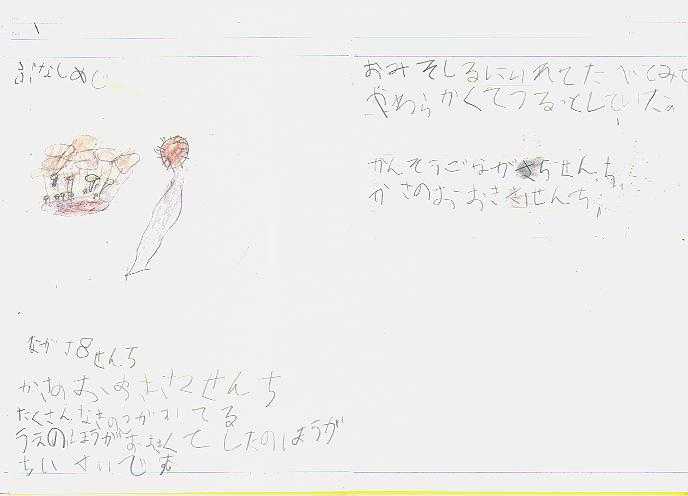 ぶなしめじ
ながさ8せんち
かさのおおきさ2せんち
たくさんなきのこがはいてる
うえのほうがおおきくてしたのほうが
ちいさいです
おみそしるにいれてたべてみて
やわらかくてつるっとしていた。
かんそうごなが ちせんち
かさのおおきさ せんち